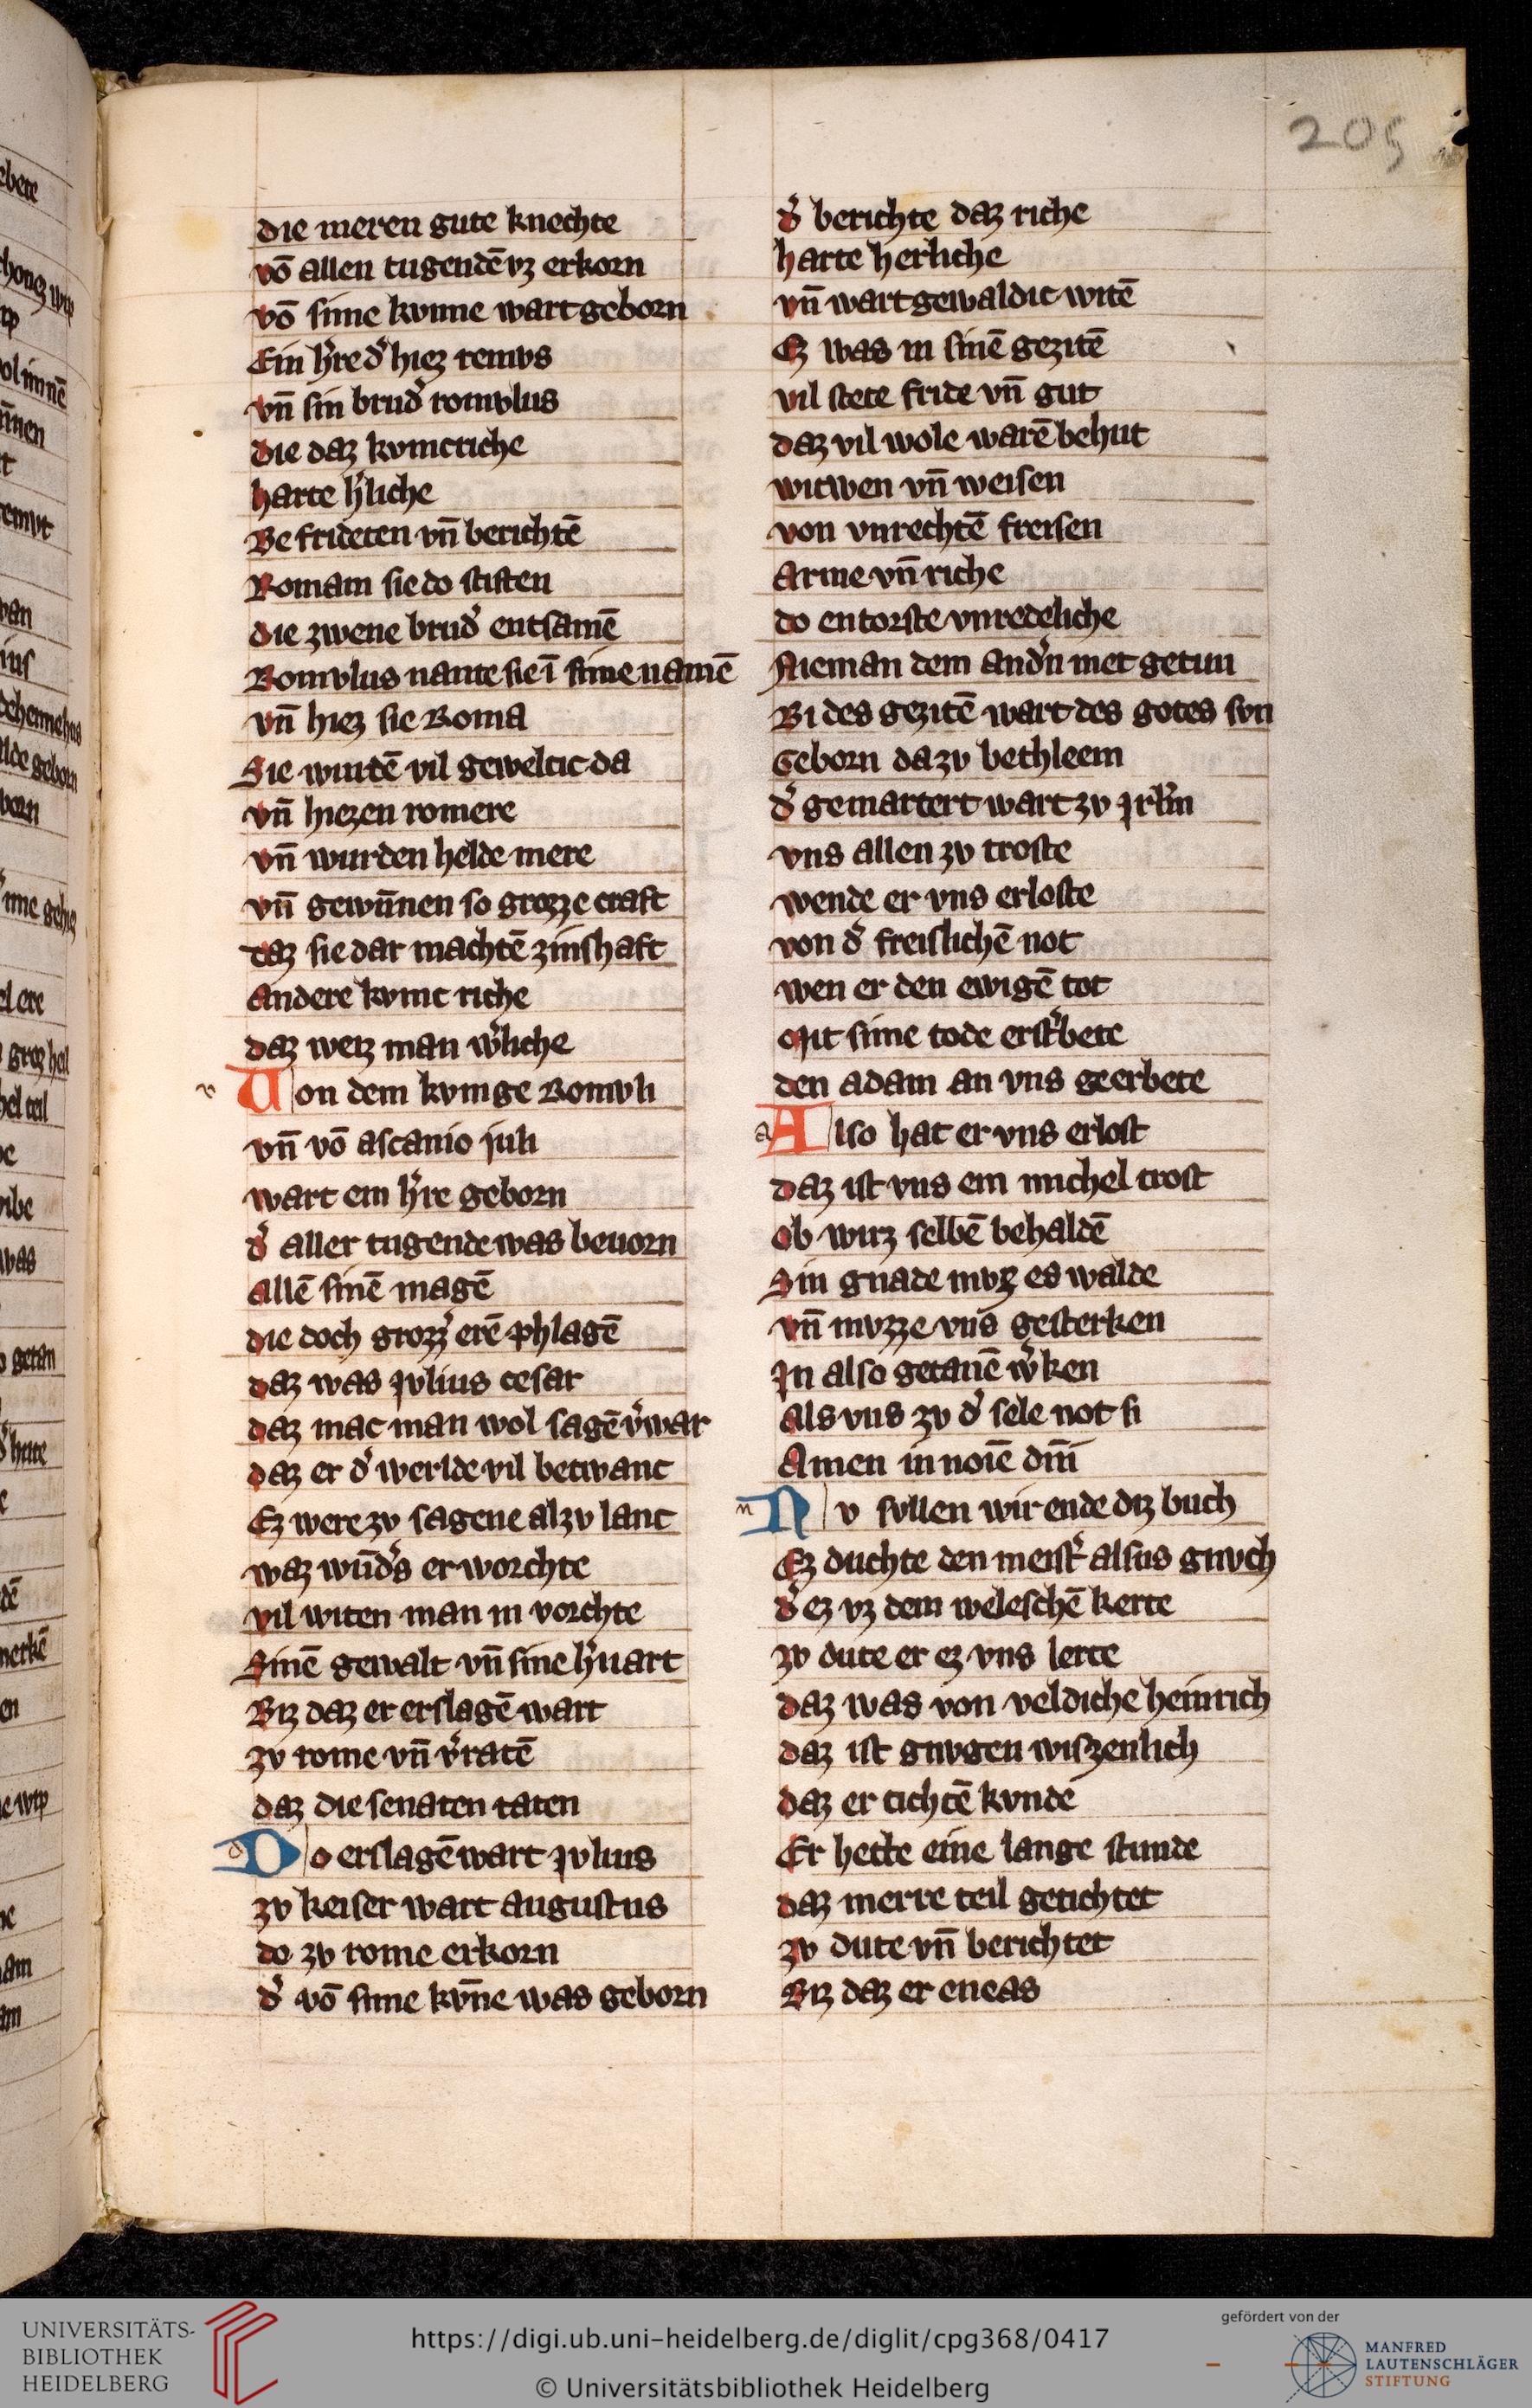 205
die meren gute knechte
vō allen tugendē vz erkorn
vō sime kvnne wart geborn
Ein h̾re d̾ hiez remvs
vn̄ sin brud̾ romvlus
die daz kvnicriche
harte h̾liche
Be frideten vn̄ berichtē
Romam sie do stiften
die zwene brud̾ entsamē
Romvlus nante sie ī sime namē
vn̄ hiez sie Roma
Sie wurdē vil geweltic da
vn̄ hiezen romere
vn̄ wurden helde mere
vn̄ gewūnen so grozze craft
daz sie dar machtē zinshaft
andere kvnic riche
daz weiz man w̾liche
Uon dem kvnige Romvli
vn̄ vō ascanio juli
wart ein h̾re geborn
d̾ aller tugende was beuorn
allē sinē magē
die doch grozz̾ erē phlagē
daz was jvlius cesar
daz mac man wol sagē v̾war
daz er d̾ werlde vil betwanc
Ez were zv sagene alzv lanc
waz wūd̾s er worchte
vil witen man in vorchte
Sinē gewalt vn̄ sine h̾uart
Biz daz er erslagē wart
zv rome vn̄ v̾ratē
daz die senaten taten
Do erslagē wart jvlius
zv keiser wart augustus
do zv rome erkorn
d̾ vō sime kv̄ne was geborn
d̾ berichte daz riche
harte herliche
vn̄ wart gewaldic witē
Ez was in sinē gezitē
vil stete fride vn̄ gut
daz vil wole warē behut
witwen vn̄ weisen
von vnrechtē freisen
arme vn̄ riche
do entorste vnredeliche
Nieman dem and̾n niet getun
Bi des gezitē wart des gotes svn
Geborn da zv bethleem
d̾ gemartert wart zv jrl̄m
vns allen zv troste
wende er vns erloste
von d̾ freislichē not
wen er den ewigē tot
Mit sime tode erst̾bete
den adam an vns geerbete
Also hat er vns erlost
daz ist vns ein michel trost
ob wirz selbē behaldē
Sin gnade mvz es walde
vn̄ mvzze vns gesterken
Jn also getanē w̾ken
als vns zv d̾ sele not si
Amen in noīe dn̄i
Nv svllen wir ende diz buch
Ez duchte den meist̾ alsus gnvch
d̾ ez vz dem weleschē kerte
zv dute er ez vns lerte
daz was von veldiche heinrich
daz ist gnvgen wiszenlich
daz er tichtē kvnde
Er hette eine lange stunde
daz merre teil getichtet
zv dute vn̄ berichtet
Biz daz er eneas
UNIVERSITÄTS-
BIBLIOTHEK
HEIDELBERG
https://digi.ub.uni-heidelberg.de/diglit/cpg368/0417
© Universitätsbibliothek Heidelberg
gefördert von der
MANFRED
LAUTENSCHLÄGER
STIFTUNG